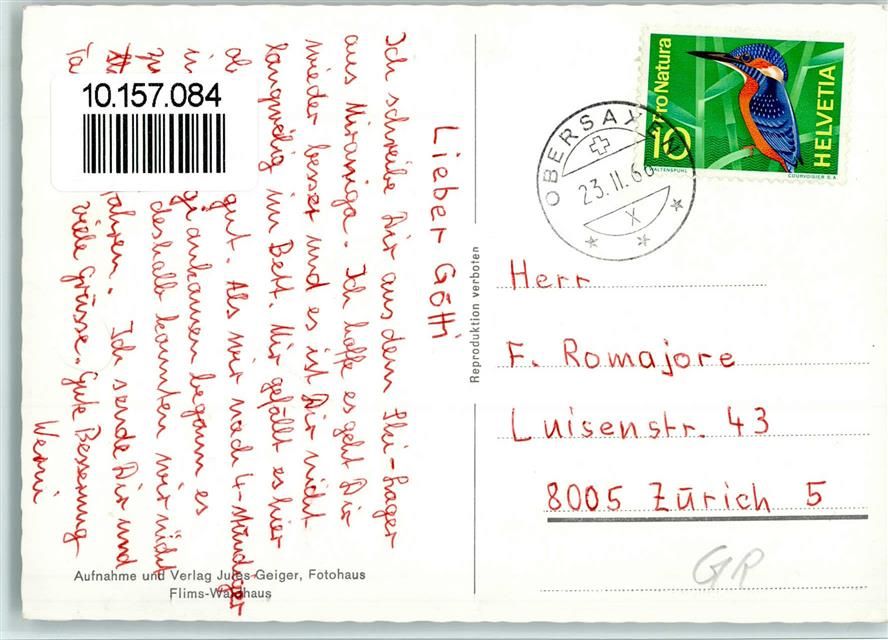 Lieber Götti
Ich schreibe Dir aus dem Ski-Lager
aus Miraniga. Ich hoffe es geht Dir
wieder besser und es ist Dir nicht
langweilig im Bett. Mir gefällt es hier
gut. Als wir nach 4-stündiger
ankamen begann es
deshalb konnten wir nicht
fahren. Ich sende Dir und
viele Grüsse. Gute Besserung
Werni
10.157.084
Aufnahme und Verlag Jules Geiger, Fotohaus
Flims-Waldhaus
Reproduktion verboten
OBERSAXEN
23.II.66
X
Pro Natura
10
HELVETIA
COURVOISIER S.A.
Herr
F. Romajore
Luisenstr. 43
8005 Zürich 5
GR